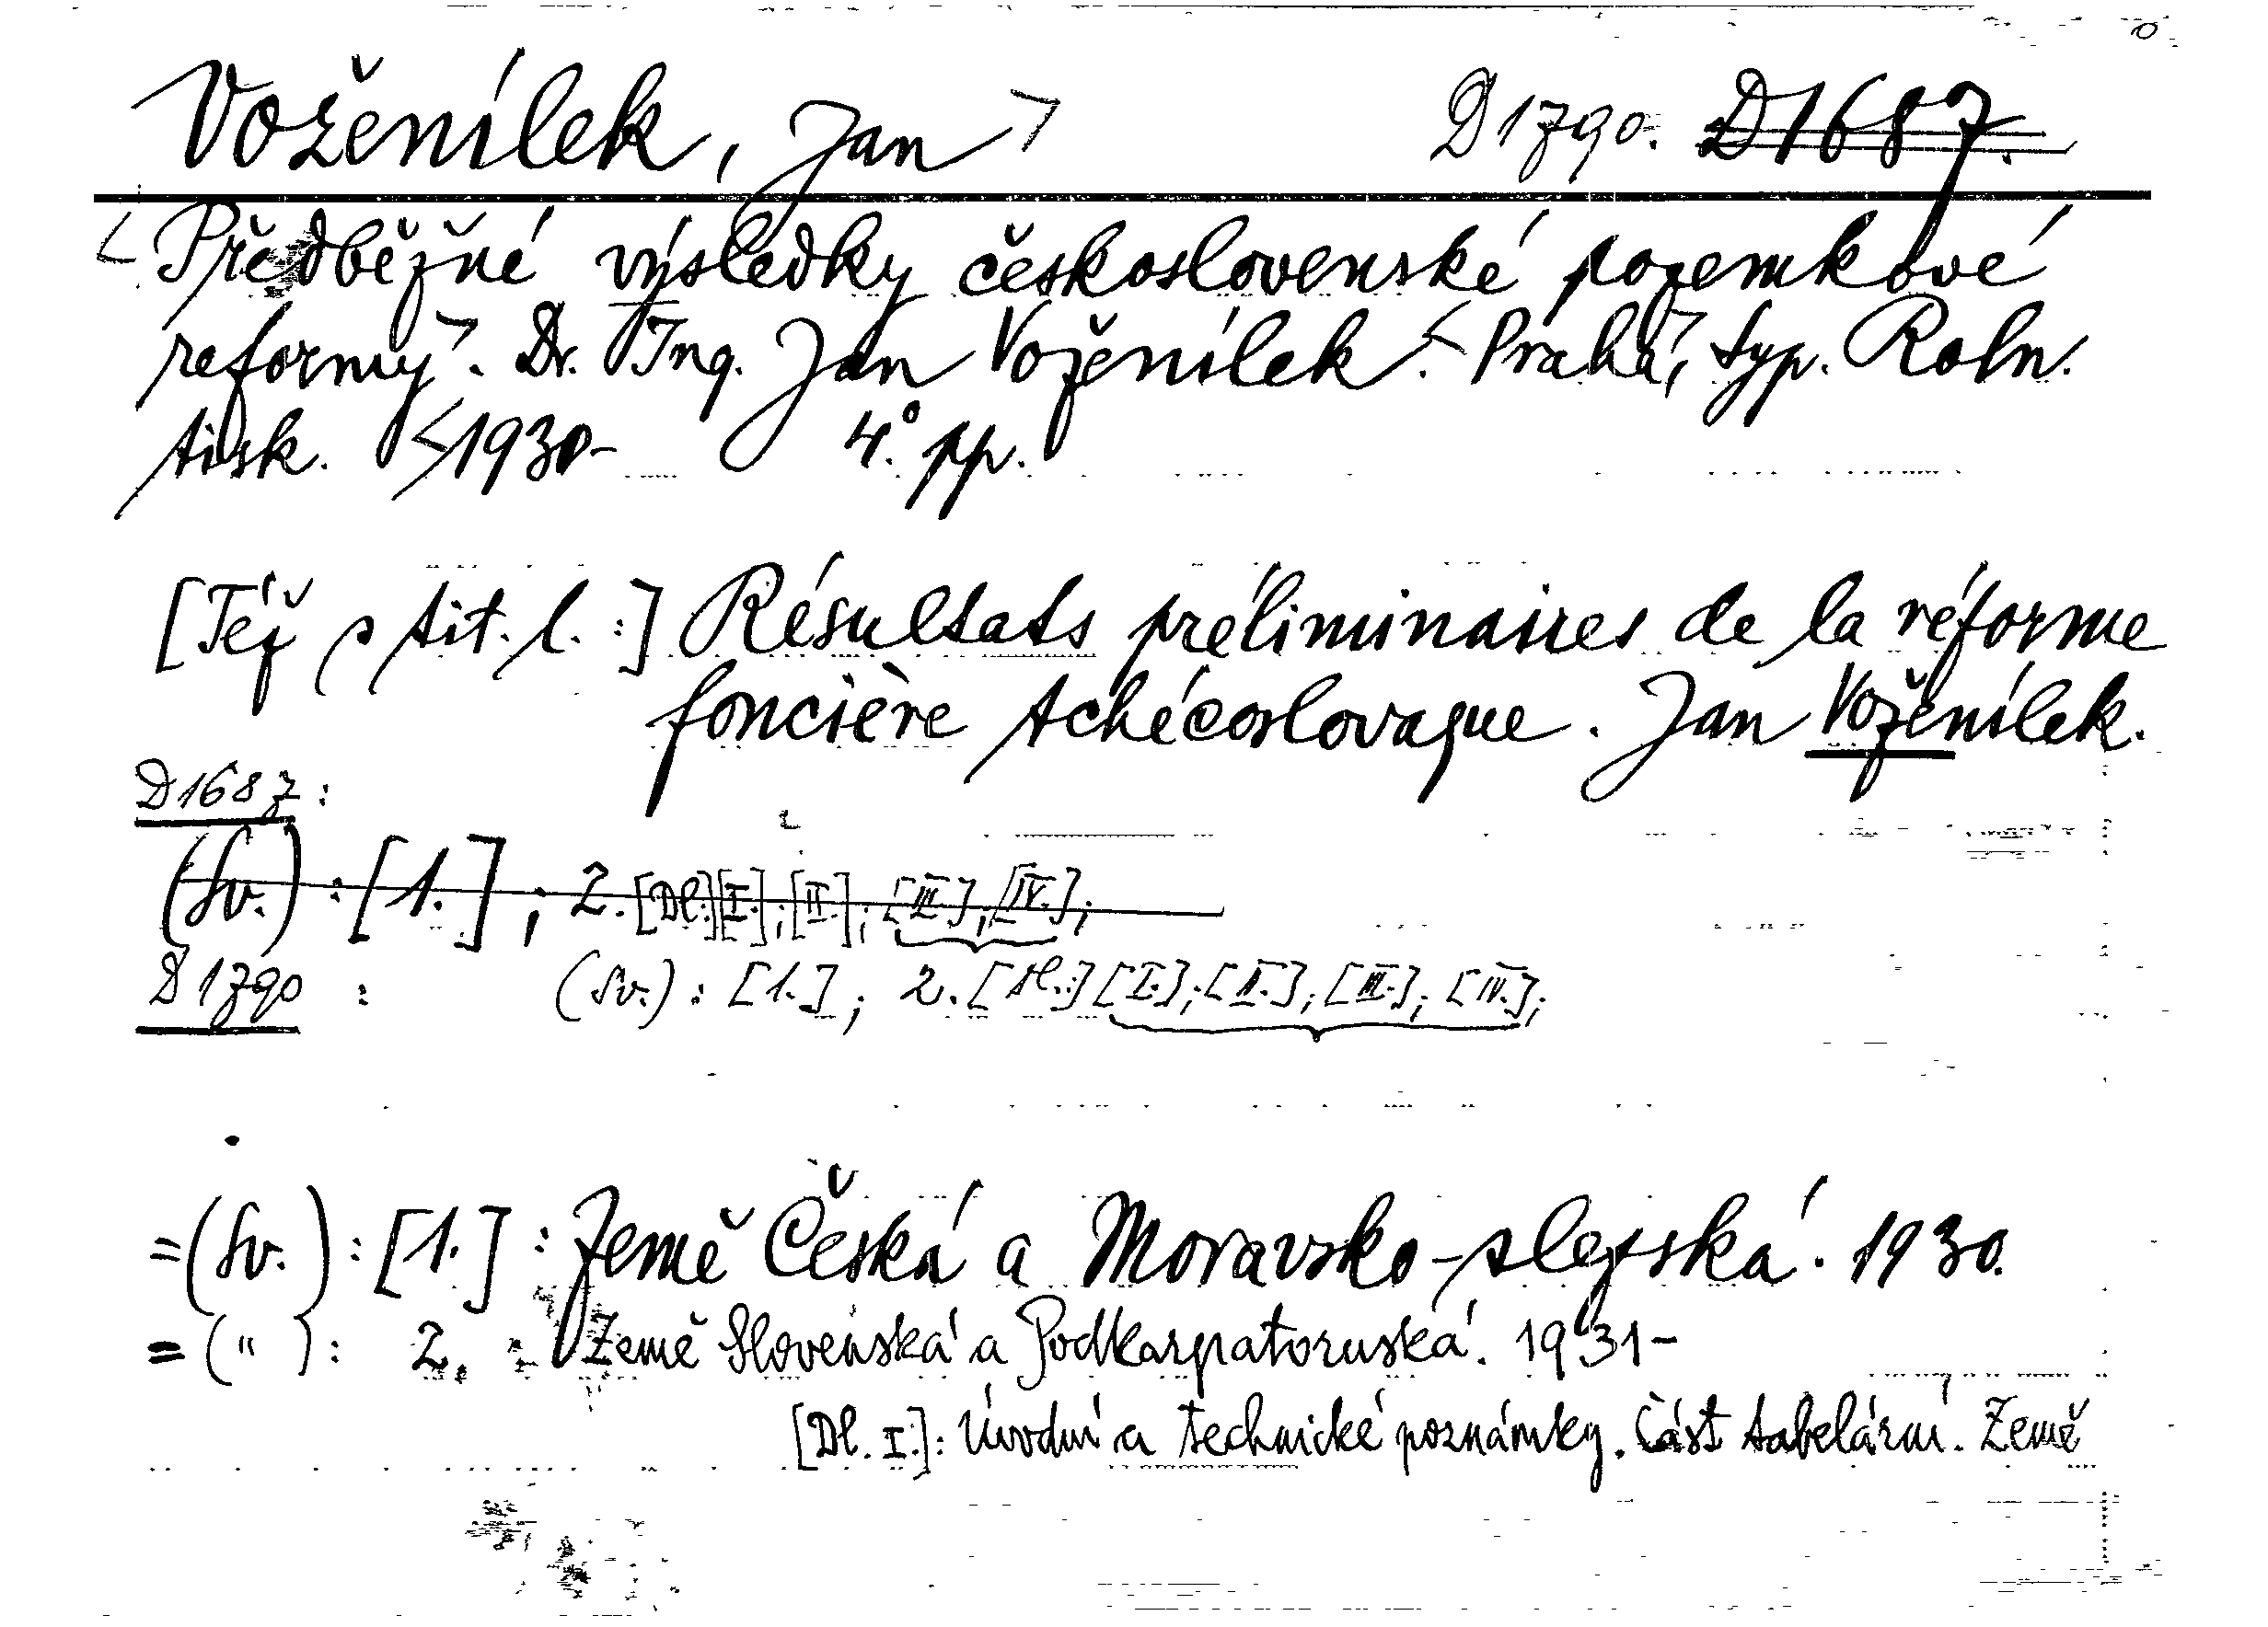 Voženílek, Jan > D 1790. D 1687.
< Předběžné výsledky československé pozemkové
reformy >. Dr. Ing. Jan Voženílek. < Praha >, typ. Roln.
tisk. < 1930- 4.° pp.
[Též s tit. l. :] Résultats préliminaires de la réforme
foncière tchécoslovaque. Jan Voženílek.
D 1687 :
(Sv.) : [1.] ; 2. [Dl.] [I.] ; [II.] ; [III.] ; [IV.] ;
D 1790 : (Sv.) : [1.] ; 2. [Dl.:] [I.] ; [II.] ; [III.] ; [IV.] ;
= (Sv.) : [1.] : Země Česká a Moravsko-slezská. 1930.
= ( " ) : 2. : Země Slovenská a Podkarpatoruská. 1931-
[Dl. I.] : Úvodní a technické poznámky. Část tabelární. Země